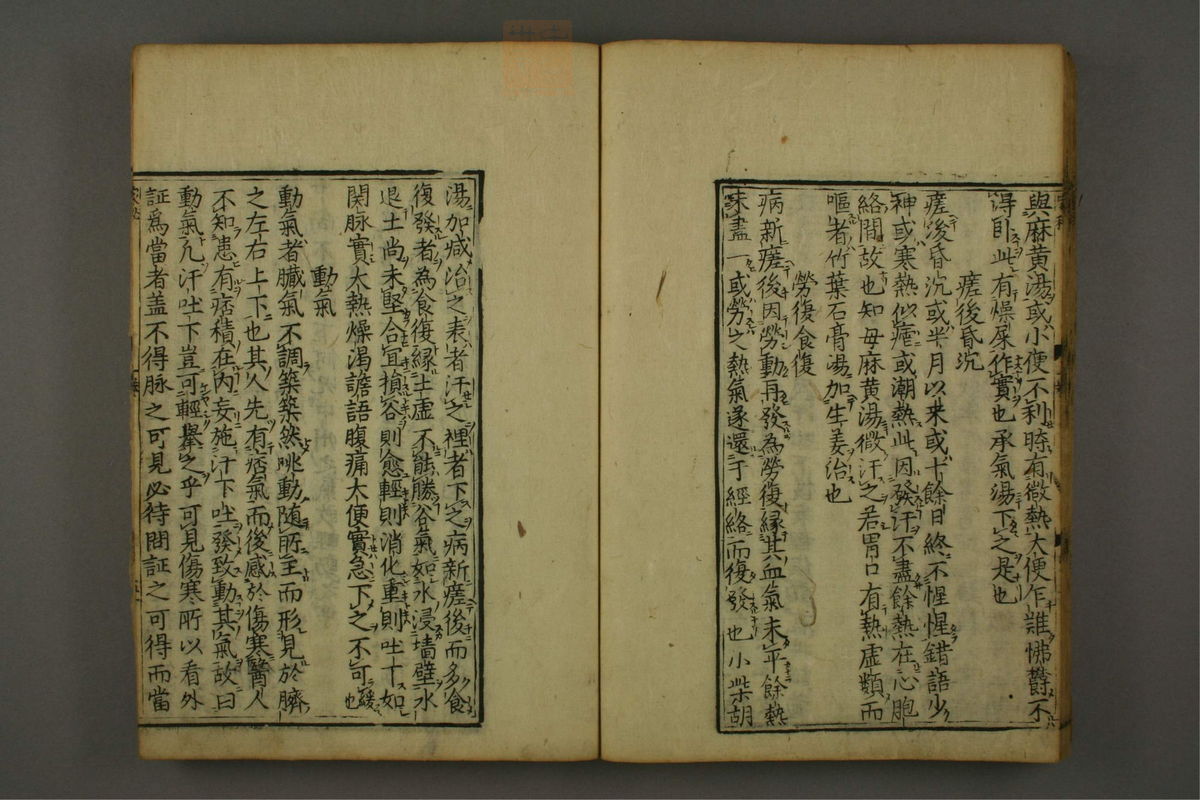 與麻黄湯或小便不利時有微熱大便乍難怫欝不
得卧此有燥屎作實也承氣湯下之是也
瘥後昏沉
瘥後昏沉或半月以来或十餘日終不惺惺錯語少
神或寒熱似瘧或潮熱此因發汗不盡餘熱在心胞
絡間故也知母麻黄湯微汗之若胃口有熱虚類而
嘔者竹葉石膏湯加生姜治也
勞復食復
病新瘥後因勞動再發為勞復縁其血氣未平餘熱
未盡一或勞之熱氣遂還于經絡而復發也小柴胡
湯加减治之表者汗之裡者下之病新瘥後而多食
復發者為食復縁土虚不能勝谷氣如水浸墻壁水
退土尚未堅合宜損谷則愈輕則消化重則吐下如
関脉實大熱燥渴譫語腹痛大便實急下之不可緩也
動氣
動氣者臓氣不調築築然跳動随所主而形見於臍
之左右上下也其人先有痞氣而後感於傷寒醫人
不知患有痞積在内妄施汗下吐發致動其氣故曰
動氣凢汗吐下豈可輕舉之乎可見傷寒所以看外
証爲當者盖不得脉之可見必待問証之可得而當